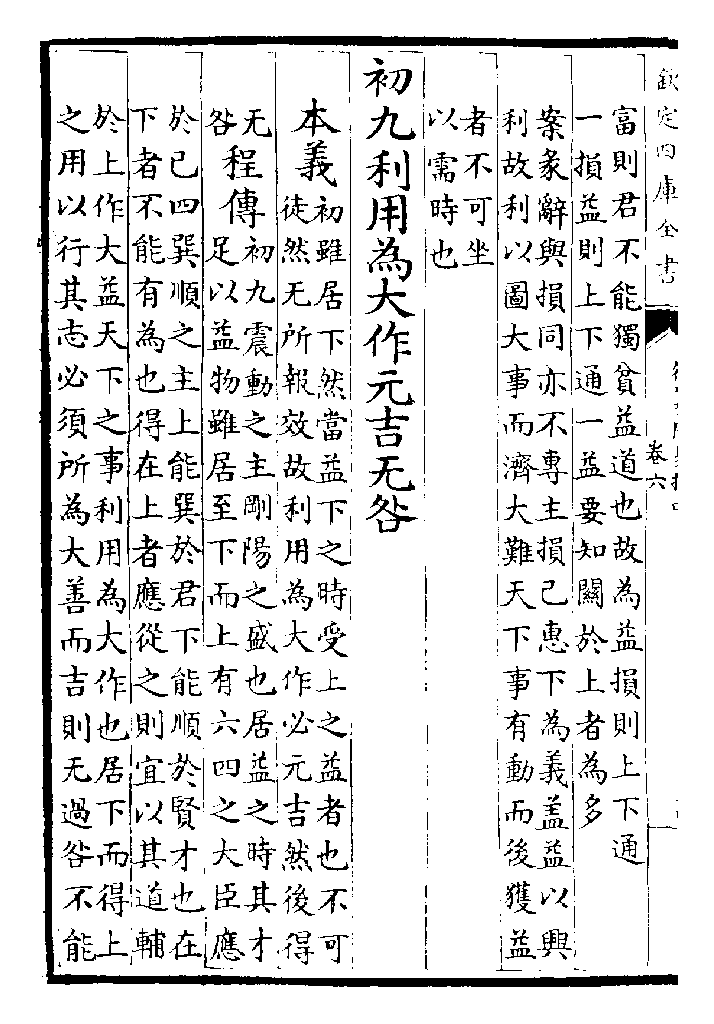 欽定四庫全書
卷六
富則君不能獨貧益道也故為益損則上下通
一損益則上下通一益要知關於上者為多
案彖辭與損同亦不專主損己惠下為義盖益以興
利故利以圖大事而濟大難天下事有動而後獲益
者不可坐
以需時也
初九利用為大作元吉无咎
本義
初雖居下然當益下之時受上之益者也不可
徒然无所報效故利用為大作必元吉然後得
无
咎
程傳
初九震動之主剛陽之盛也居益之時其才
足以益物雖居至下而上有六四之大臣應
於已四巽順之主上能巽於君下能順於賢才也在
下者不能有為也得在上者應從之則宜以其道輔
於上作大益天下之事利用為大作也居下而得上
之用以行其志必須所為大善而吉則无過咎不能